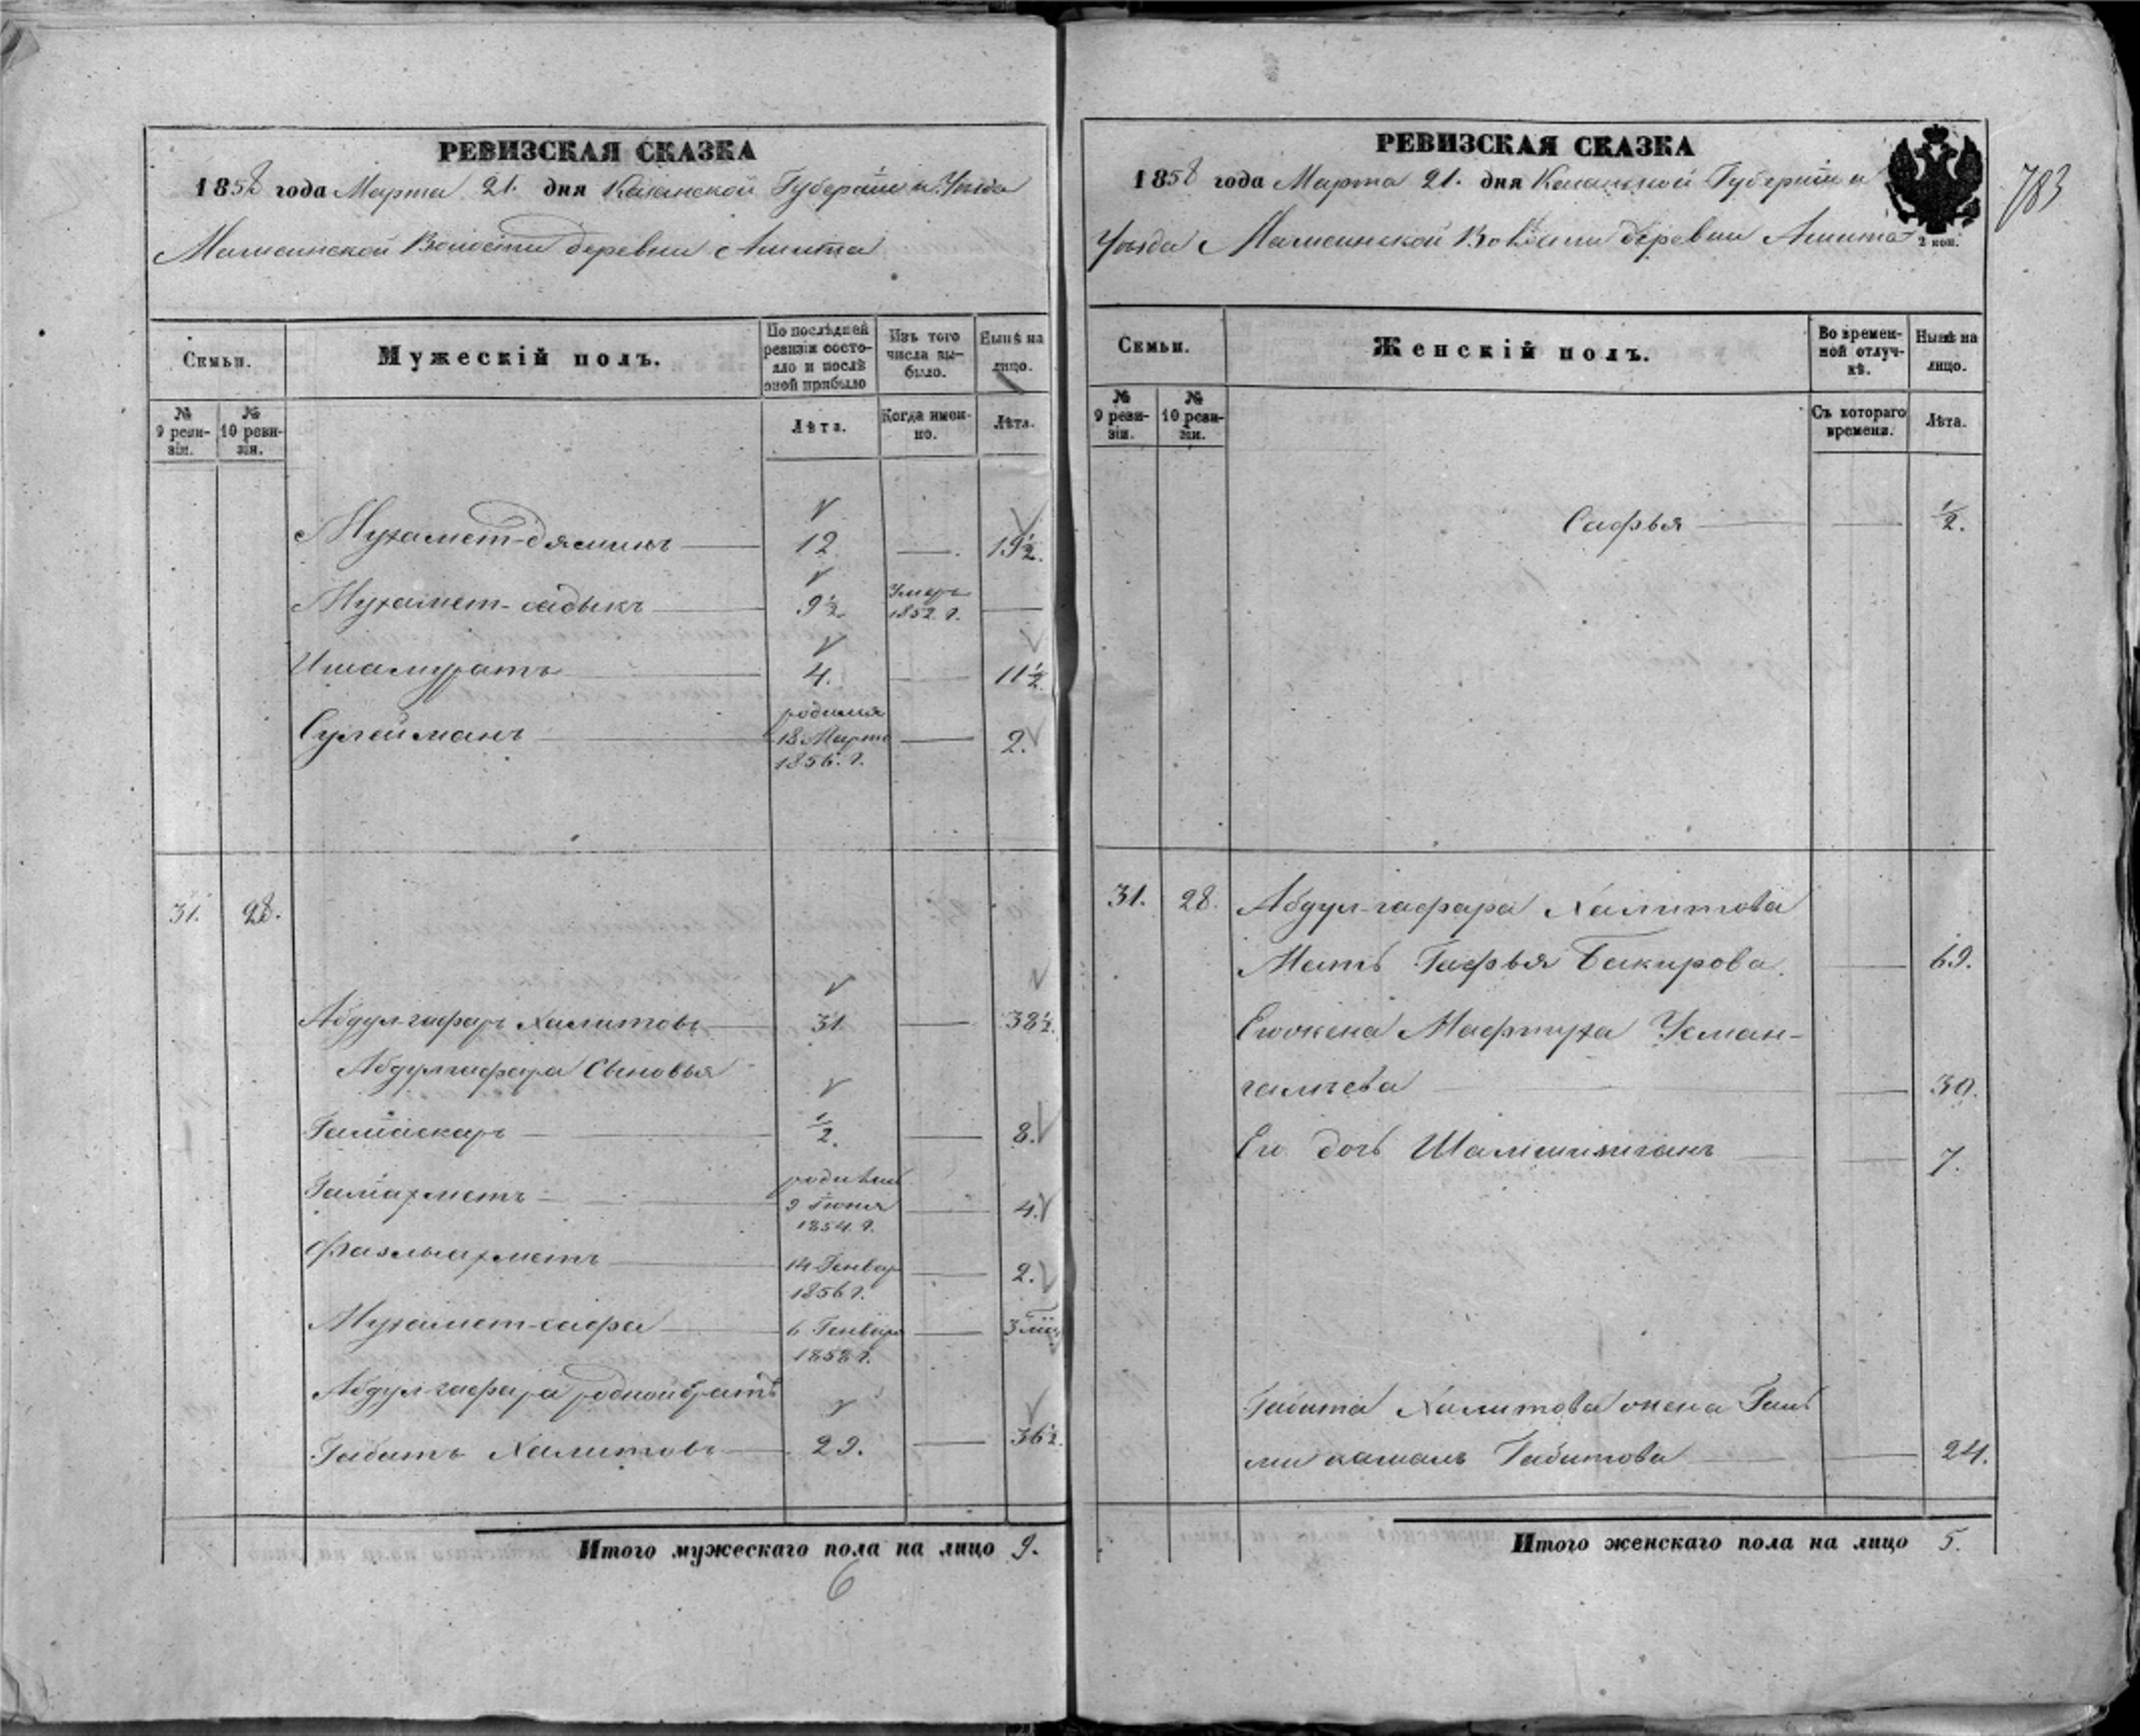 РЕВИЗСКАЯ СКАЗКА
1858 года Марта 21. дня Казанской Губерніи и Уѣзда
Мамсинской Волости деревни Ашита
Семьи.
Мужескій полъ.
По послѣдней ревизіи состояло и послѣ оной прибыло
Изъ того числа выбыло.
Нынѣ на лицо.
№ 9 ревизіи.
№ 10 ревизіи.
Лѣта.
Когда именно.
Лѣта.
Мухамет-дяминъ 12 19½.
Мухамет-садыкъ 9½ Умеръ 1852. г.
Ишамуратъ 4. 11½.
Сулейманъ родился 18 Марта 1856. г. 2.
31. 28.
Абдул-гафаръ Халитовъ 31 38½.
Абдулгафара Сыновья
Галіаскаръ ½. 8.
Галіахметъ родивш 9 Іюня 1854. г. 4.
Фазлыахметъ 14 Генвар 1856 г. 2.
Мухамет-сафа 6 Генваря 1858 г. 3
Абдул-гафара родной братъ
Габитъ Халитовъ 29. 36½.
Итого мужескаго пола на лицо 9.
6
РЕВИЗСКАЯ СКАЗКА
1858 года Марта 21. дня Казанской Губерніи и
Уѣзда Мамсинской Волости деревни Ашита
2 коп.
783
Семьи.
Женскій полъ.
Во временной отлучкѣ.
Нынѣ на лицо.
№ 9 ревизіи.
№ 10 ревизіи.
Съ котораго времени.
Лѣта.
Сафья ½.
31. 28. Абдул-гафара Халитова
Мать Гафья Бакирова. 69.
Его жена Мафтуха Усман-
галіева 30.
Его дочь 7.
Габита Халитова жена
камалъ Габитова 24.
Итого женскаго пола на лицо 5.